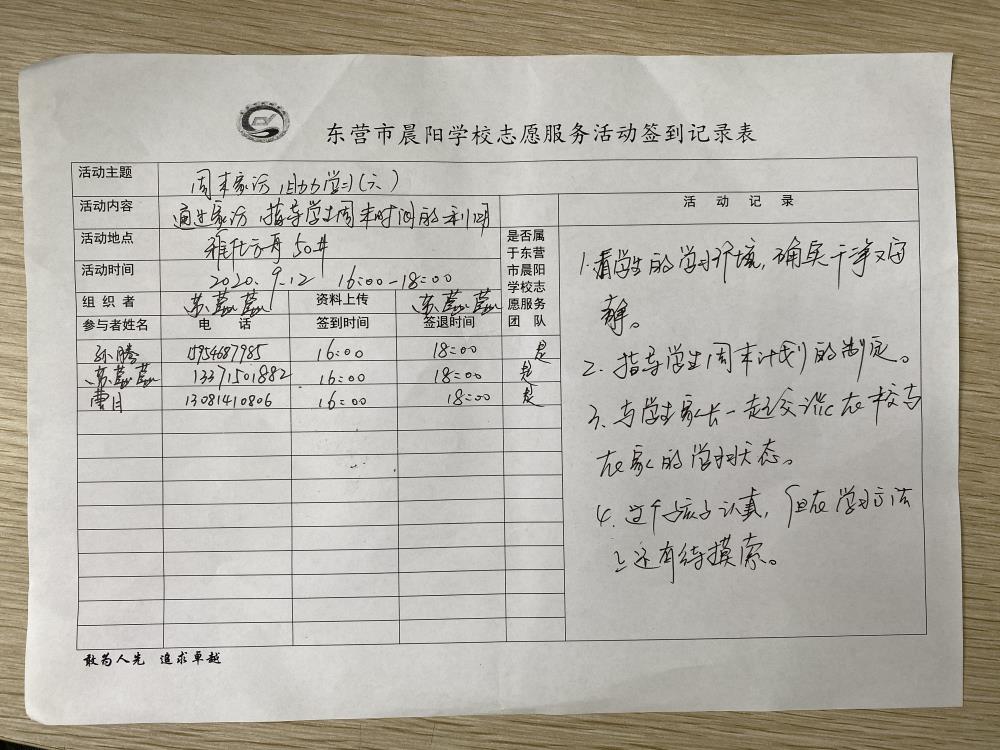 东营市晨阳学校志愿服务活动签到记录表
活动主题 周末家访,助力学习(六)
活动内容 通过家访,指导学生周末时间的利用
活动地点 雅仕方舟50#
活动时间 2020.9.12 16:00-18:00
组织者 苏蕊蕊 资料上传 苏蕊蕊
参与者姓名 电话 签到时间 签退时间
是否属
于东营
市晨阳
学校志
愿服务
团队
孙腾 15954687985 16:00 18:00 是
苏蕊蕊 13371501882 16:00 18:00 是
曹月 13081410806 16:00 18:00 是
活动记录
1.看学生的学习环境,确实干净又安
静。
2.指导学生周末计划的制定。
3.与学生家长一起交流在校与
在家的学习状态。
4.这个孩子认真,但在学习方法
上还有待摸索。
敢为人先 追求卓越